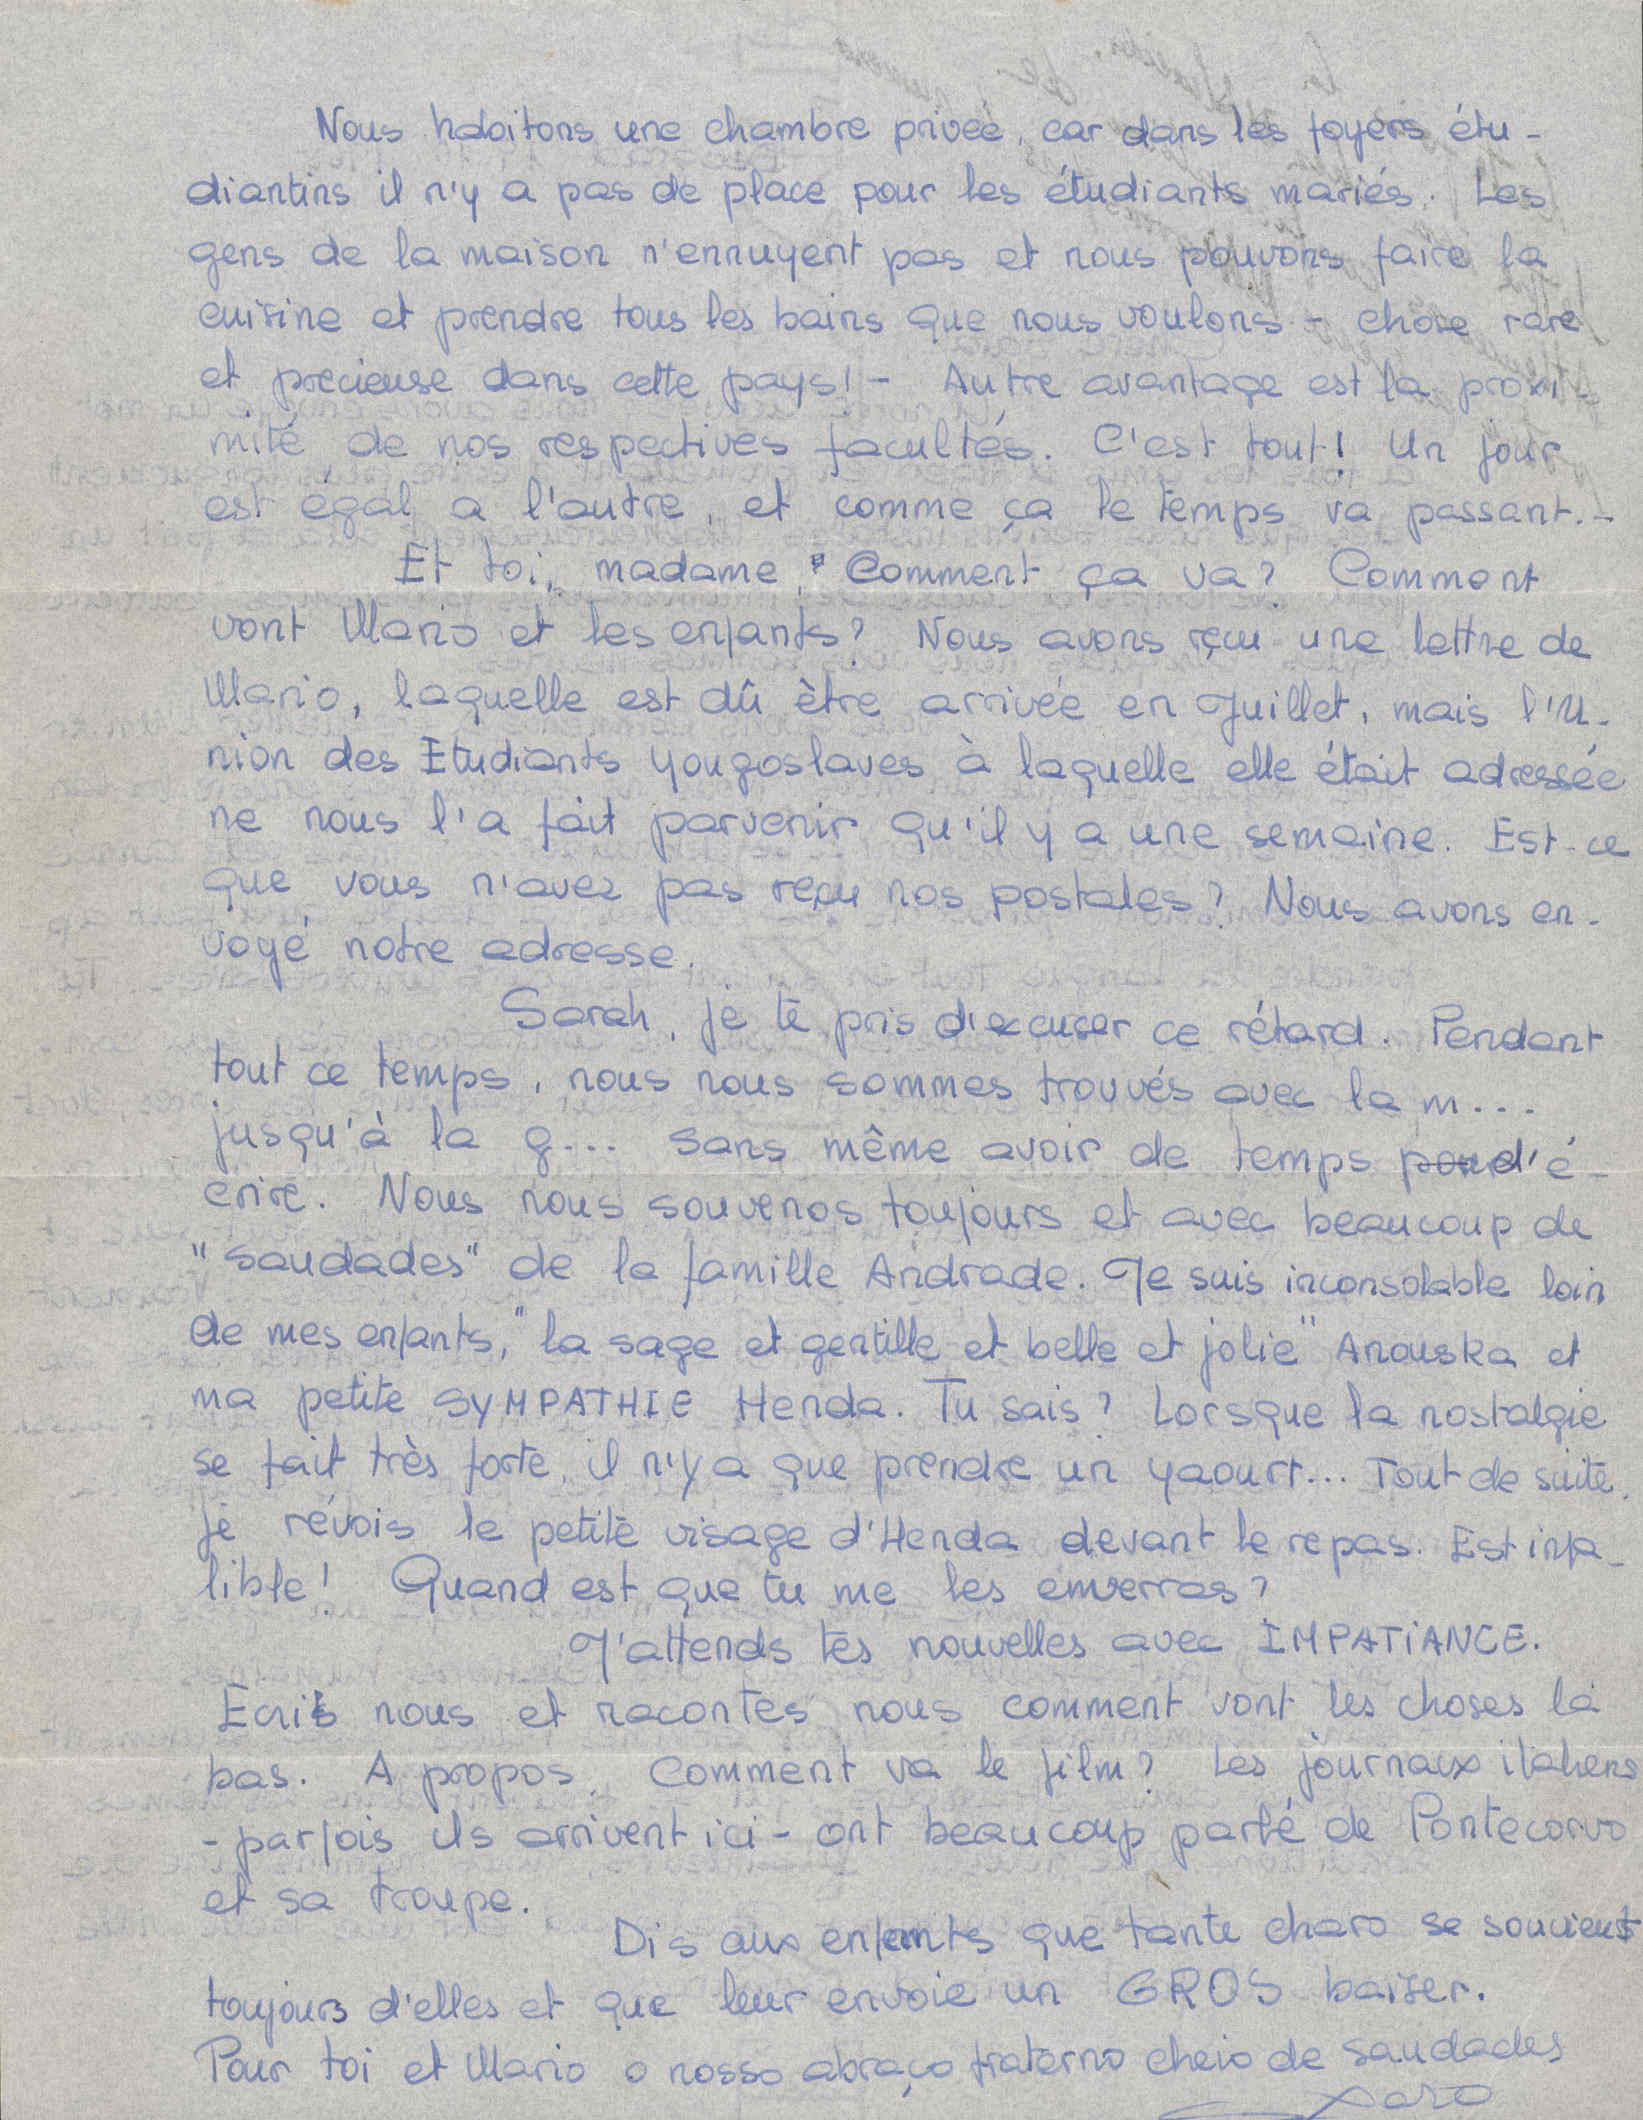 Nous habitons une chambre privée, car dans les foyers étu-
diantins il n'y a pas de place pour les étudiants mariés. Les
gens de la maison n'ennuyent pas et nous pouvons faire la
cuisine et prendre tous les bains que nous voulons - chose rare
et precieuse dans cette pays! - Autre avantage est la proxi-
mité de nos respectives facultés. C'est tout! Un jour
est égal a l'autre, et comme ça le temps va passant.-
Et toi, madame, Comment ça va? Comment
vont Mario et les enfants? Nous avons reçu une lettre de
Mario, laquelle est dû être arrivée en Juillet, mais l'U-
nion des Etudiants Yougoslaves à laquelle elle était adressée
ne nous l'a fait parvenir qu'il y a une semaine. Est-ce
que vous n'avez pas reçu nos postales? Nous avons en-
voyé notre adresse.
Sarah, je te pris d'excuser ce rétard. Pendant
tout ce temps, nous nous sommes trouvés avec la m...
jusqu'à la g... sans même avoir de temps d'é-
crire. Nous nous souvenos toujours et avec beaucoup de
"saudades" de la famille Andrade. Je suis inconsolable loin
de mes enfants, "la sage et gentille et belle et jolie" Anouska et
ma petite SYMPATHIE Henda. Tu sais? Lorsque la nostalgie
se fait très forte, il n'y a que prendre un yaourt... Tout de suite,
je révois le petite visage d'Henda devant le repas. Est infa-
lible! Quand est que tu me les enverras?
J'attends tes nouvelles avec IMPATIANCE.
Ecris nous et racontes nous comment vont les choses là
bas. A propos, Comment va le film? Les journaux italiens
- parfois ils arrivent ici - ont beaucoup parlé de Pontecorvo
et sa troupe.
Dis aux enfants que tante charo se souvient
toujours d'elles et que leur envoie un GROS baiser.
Pour toi et Mario o nosso abraço fraterno cheio de saudades